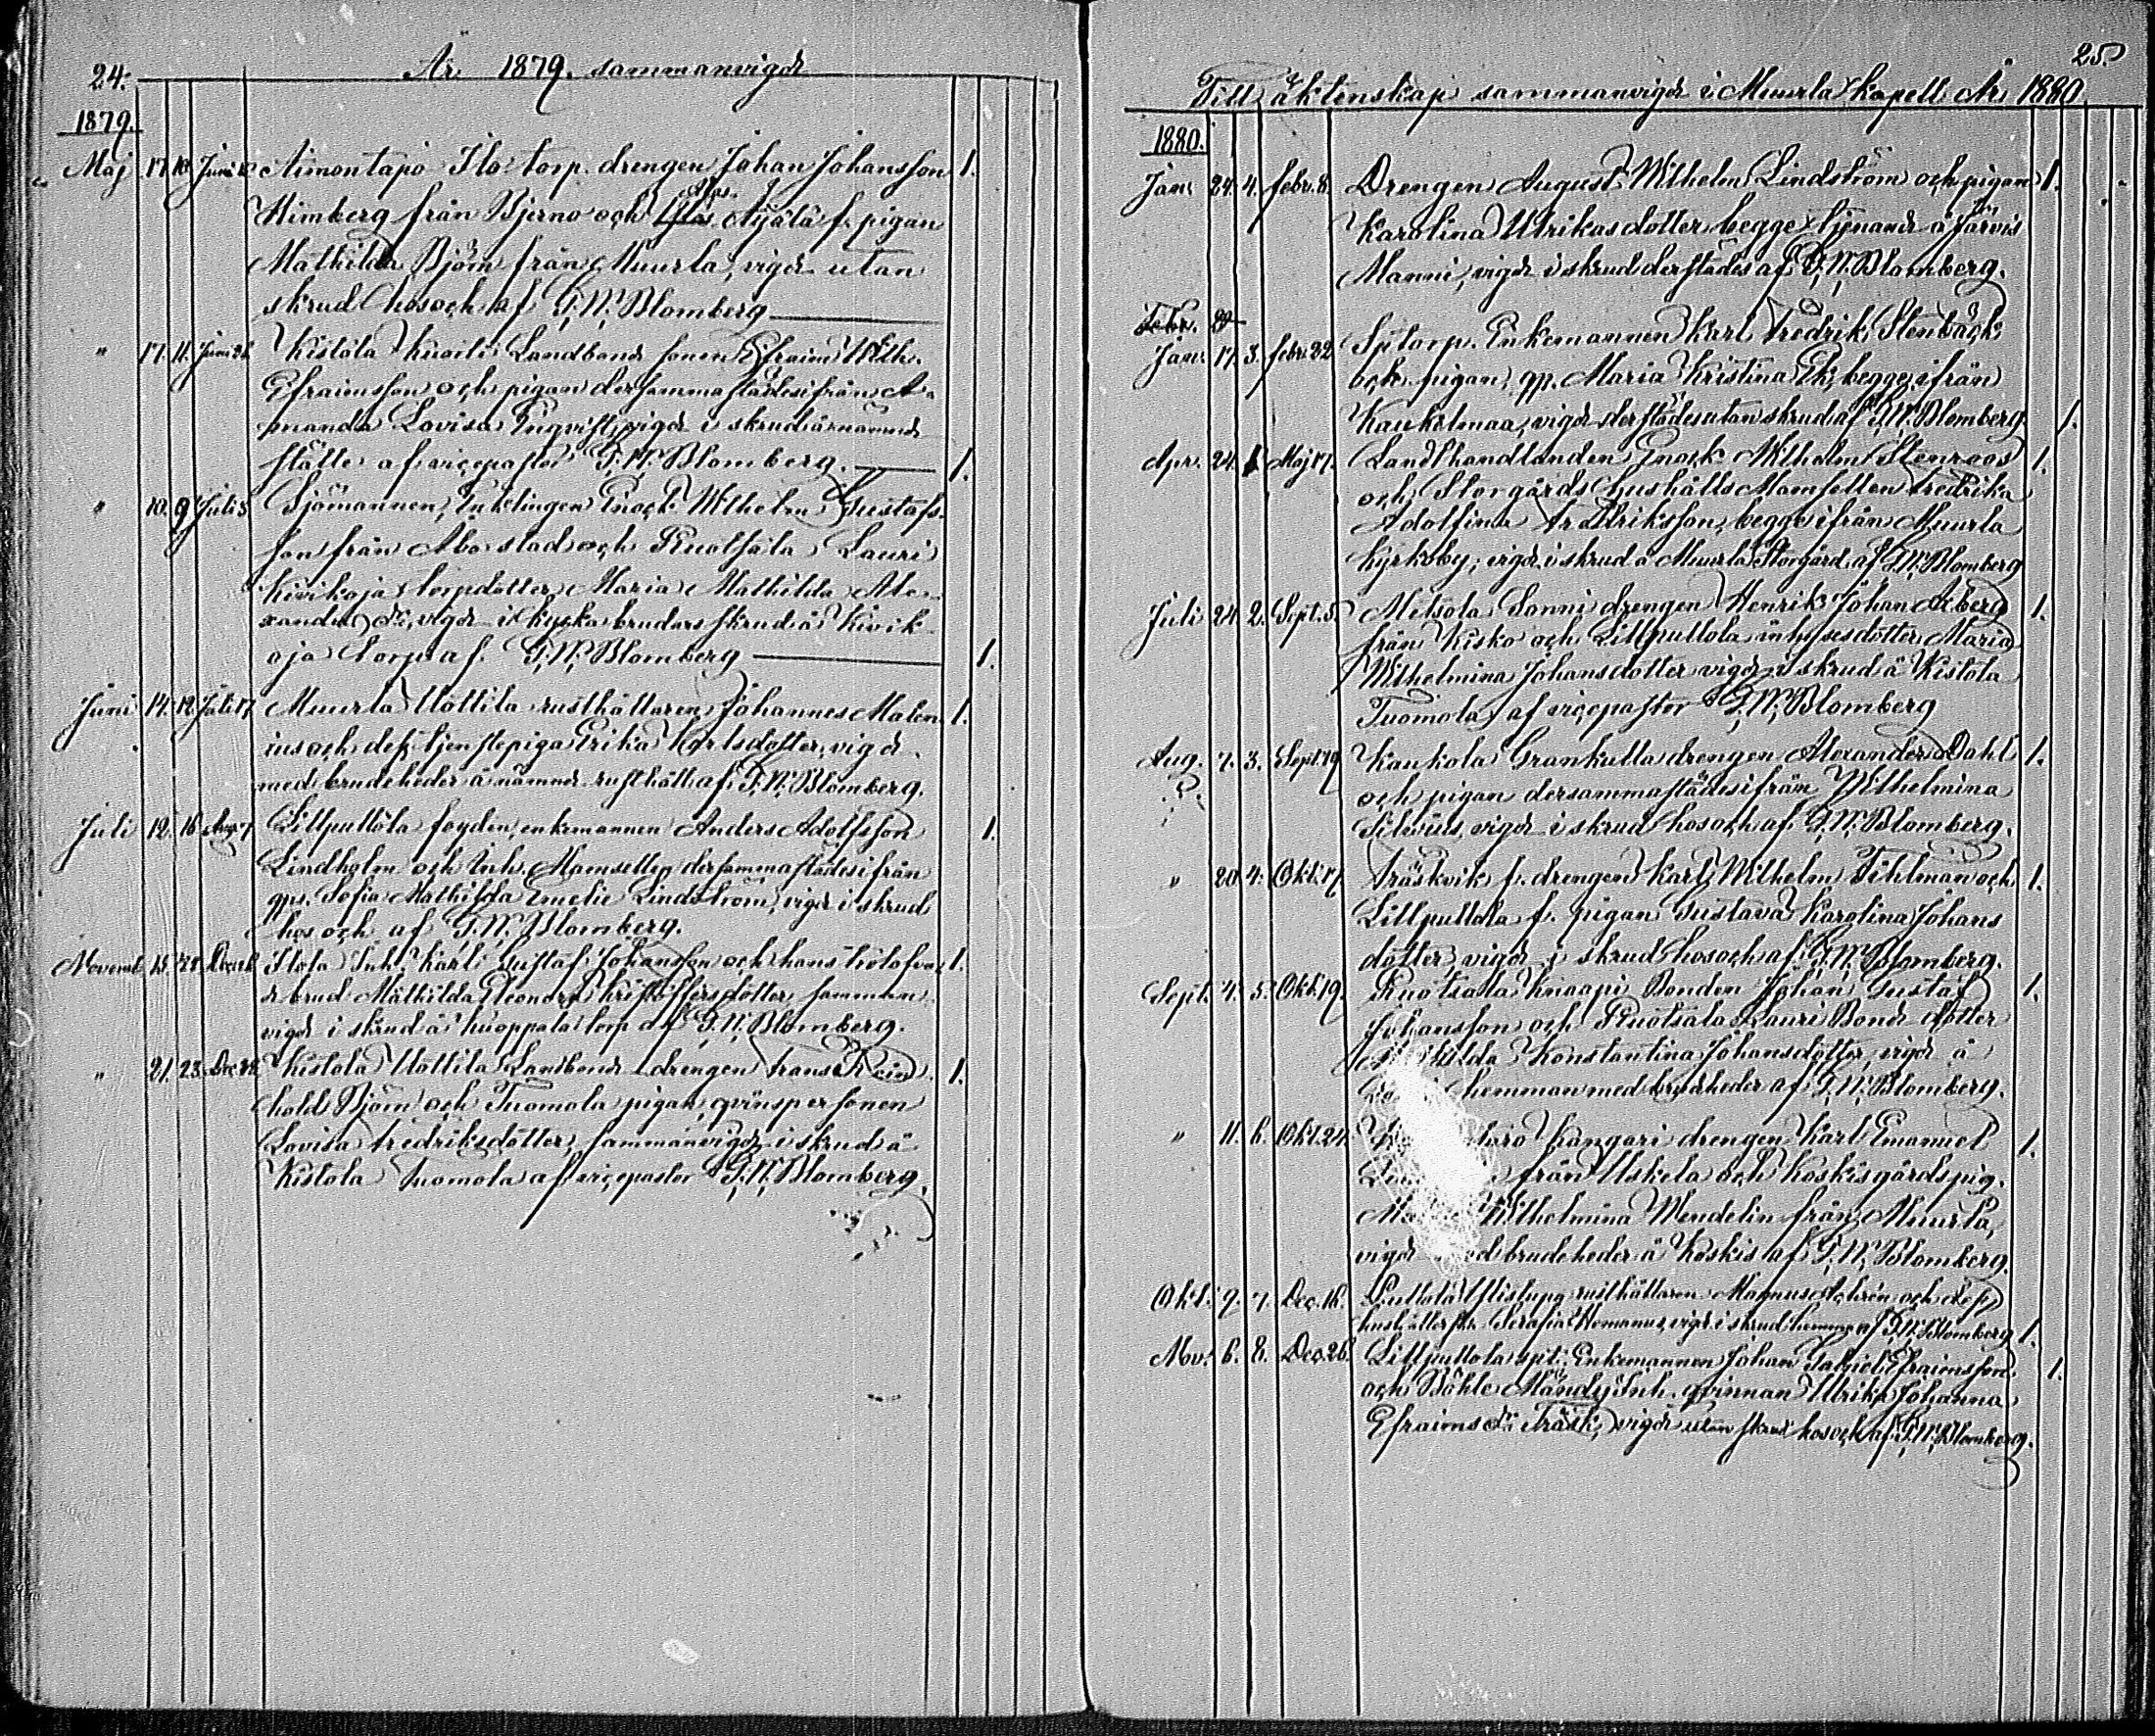 24.
År 1879. sammanvigde
1879.
Maj 17. 10. Juni Aimontapio Ilo torp. drengen Johan Johansson 1.
Himberg från Bjerno och Alas Ylas Äijälä f. pigan
Mathilda Björn från Muurla, vigde utan
skrud hos och af G. W. Blomberg
" 17. 11. Juni 26. Kistola Landbonde sonen Efraim Wilh.
Efraimsson och pigan dersammastädes ifrån A-
manda Lovisa Engqvist, vigde i skrud å nämnde
ställe af vicepastor G. W. Blomberg. 1.
" 10. 9. Juli 5. Sjömannen, Enklingen Enock Wilhelm Gustafs-
son från Åbo stad och Ruotsala Lauri
Kivikoja torpdotter Maria Mathilda Ale-
xanders dr, vigde i kyska brudars skrud å Kivik-
oja torp af G. W. Blomberg 1.
Juni 14. 12. Juli 17 Muurla Uottila rusthållaren Johannes Malen- 1.
ius och dess tjenstepiga Erika Karlsdotter, vigde
med brudeheder å nämnde rusthåll af G. W. Blomberg.
Juli 12. 16. Aug. 7 Lillpullola foyden, enkemannen Anders Adolfsson 1.
Lindholm och Inh. Mamsellen dersammastädes ifrån
qp. Sofia Mathilda Emelie Lindström, vigde i skrud
hos och af G. W. Blomberg.
Novemb. 15. Dec. Ilola Inh. Karl Gustaf Johansson och hans trolofva- 1.
de brud Mathilda Eleonora Kristoffersdotter samman-
vigde i skrud å Kuoppala torp af G. W. Blomberg.
" 21. 23. Dec. 28. Kistola Uottila Landbonde drengen Frans Rein- 1.
hold Björn och Tuomola pigan, qvinspersonen
Lovisa Fredriksdotter, sammanvigde i skrud å
Kistola Tuomola af vicepastor G. W. Blomberg.
25.
Till äktenskap sammanvigde i Muurla kapell År 1880
1880.
Jan. 24. 4. febr. 8. Drengen August Wilhelm Lindström och pigan 1.
Karolina Ulrikasdotter begge tjenande å Järvis
Manni, vigde i skrud derstädes af G. W. Blomberg.
Febr. 20
Jan. 17. 3. febr. 22 Sptorp. Enkemannen Karl Fredrik Stenbäck
och pigan, qp. Maria Kristina Ek, begge ifrån
Kaukolmaa, vigde derstädes utan skrud af G. W. Blomberg. 1.
Apr. 24. 1 Maj 17. Landthandlanden Enock Wilhelm Stenroos 1.
och Storgårds hushålls Mamsellen Fredrika
Adolfina Fredriksson, begge ifrån Muurla
Kyrkoby, vigde i skrud å Muurla Storgård af G. W. Blomberg
Juli 24. 2. Sept. 5. Mitsola Sonni drengen Henrik Johan Åberg 1.
från Kisko och Lillpullola inhysesdotter Maria
Wilhelmina Johansdotter vigde i skrud å Kistola
Tuomola, af vicepastor G. W. Blomberg
Aug. 7. 3. Sept. 19 Kaukola Grankulla drengen Alexander Dahl 1.
och pigan dersammastädes ifrån Wilhelmina
Silenius, vigde i skrud hos och af G. W. Blomberg.
" 20. 4. Okt. 17 Träskvik f. drengen Karl Wilhelm Tihlman och 1.
Lillpullola f. pigan Gustava Karolina Johans
dotter, vigde i skrud hos och af G. W. Blomberg.
Sept. 4. 5. Okt. 19. Ruotsala Knaapi Bonden Johan Gustaf 1.
Johansson och Ruotsala Lauri Bonde dotter
Konstantina Johansdotter, vigde å
hemman med brudheder af G. W. Blomberg.
" 11. 6. Okt. 24. Kangari drengen Karl Emanuel 1.
från Uskela och Koskisgårds pig.
Wilhelmina Wendelin från Muurla,
vigde med brudeheder å Koskis af G. W. Blomberg.
Okt. 9. 7. Dec. 16. Pullola Ylistupa rusthållaren Magnus och dess
hushållerska Serafia Homanus, vigde i skrud hemma af G. W. Blomberg 1.
Nov. 6. 8. Dec. 26. Lillpullola spit. Enkemannen Johan Gabriel Efraimsson 1.
och Böhle Mändy Inh. qvinnan Ulrika Johanna
Efraims dr Träsk, vigde utan skrud hos och af G. W. Blomberg.